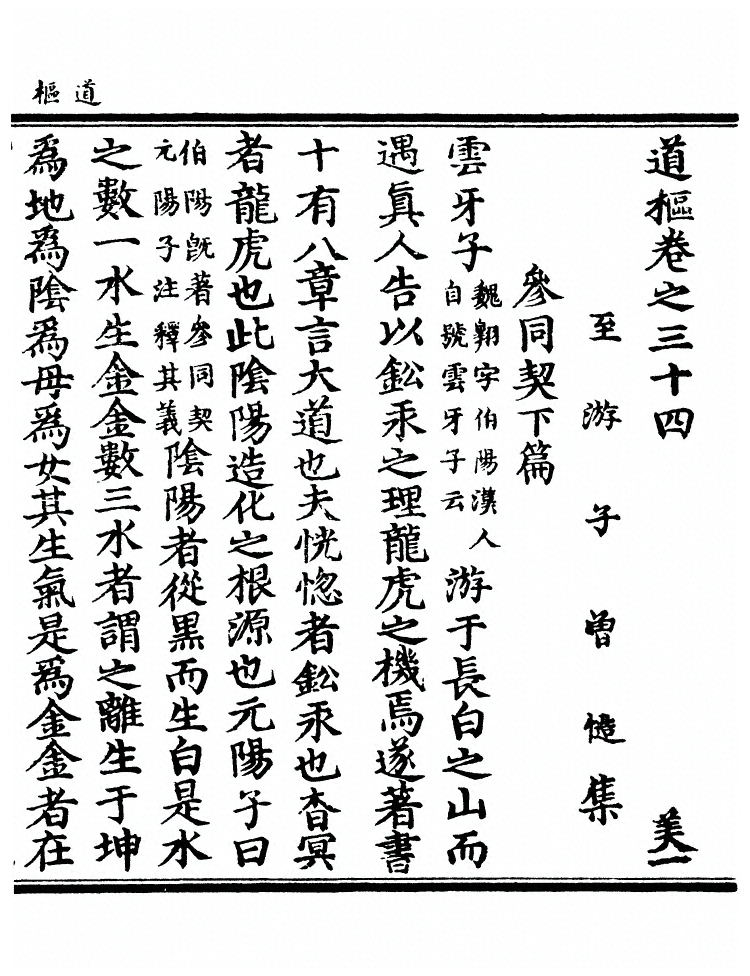 道樞
道樞卷之三十四
美一
至游子曾慥集
參同契下篇
雲牙子
魏翺字伯陽漢人
自號雲牙子云
游于長白之山而
遇眞人告以鈆汞之理龍虎之機焉遂著書
十有八章言大道也夫恍惚者鈆汞也杳冥
者龍虎也此陰陽造化之根源也元陽子曰
伯陽旣著參同契
元陽子注釋其義
陰陽者從黑而生白是水
之數一水生金金數三水者謂之離生于坤
爲地爲陰爲母爲女其生氣是爲金金者在